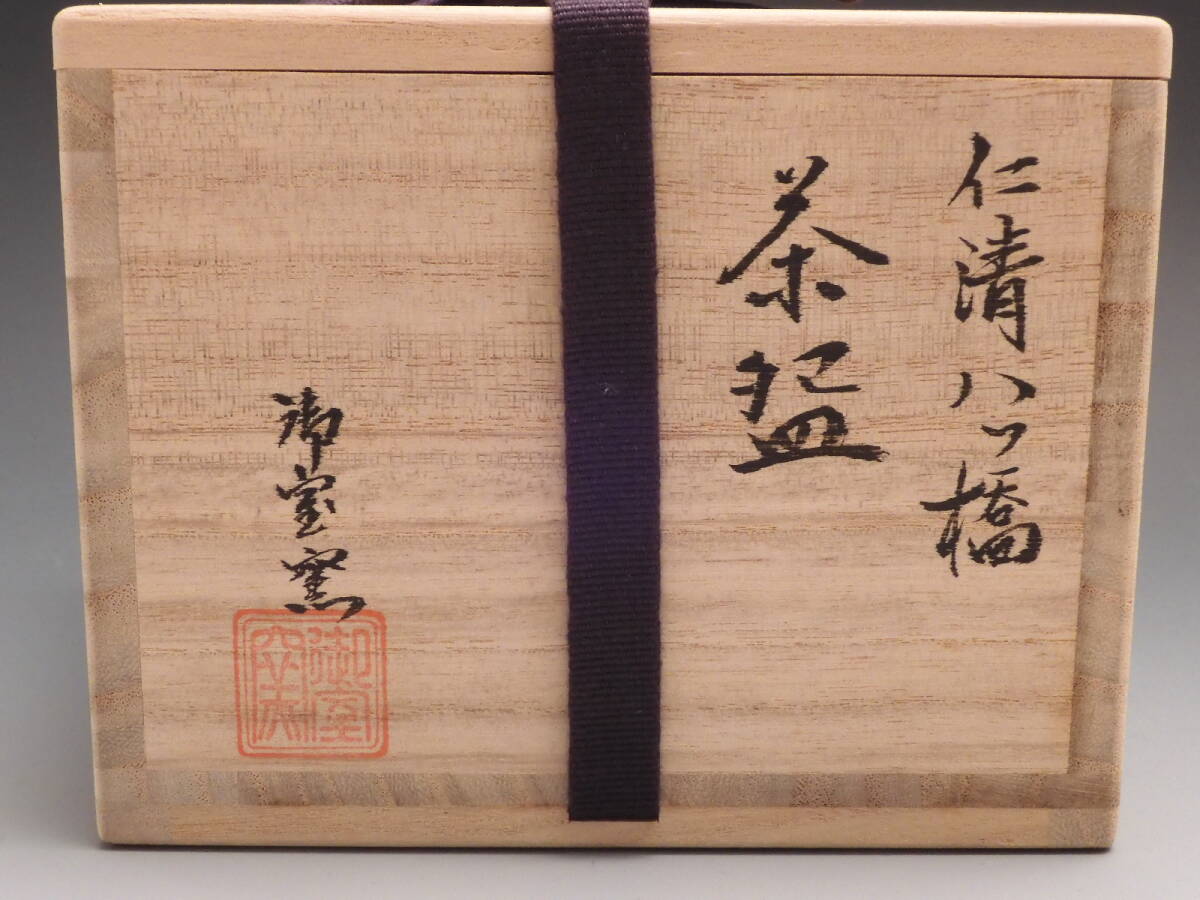 仁清八ツ橋
茶盌
御室窯
御室窯